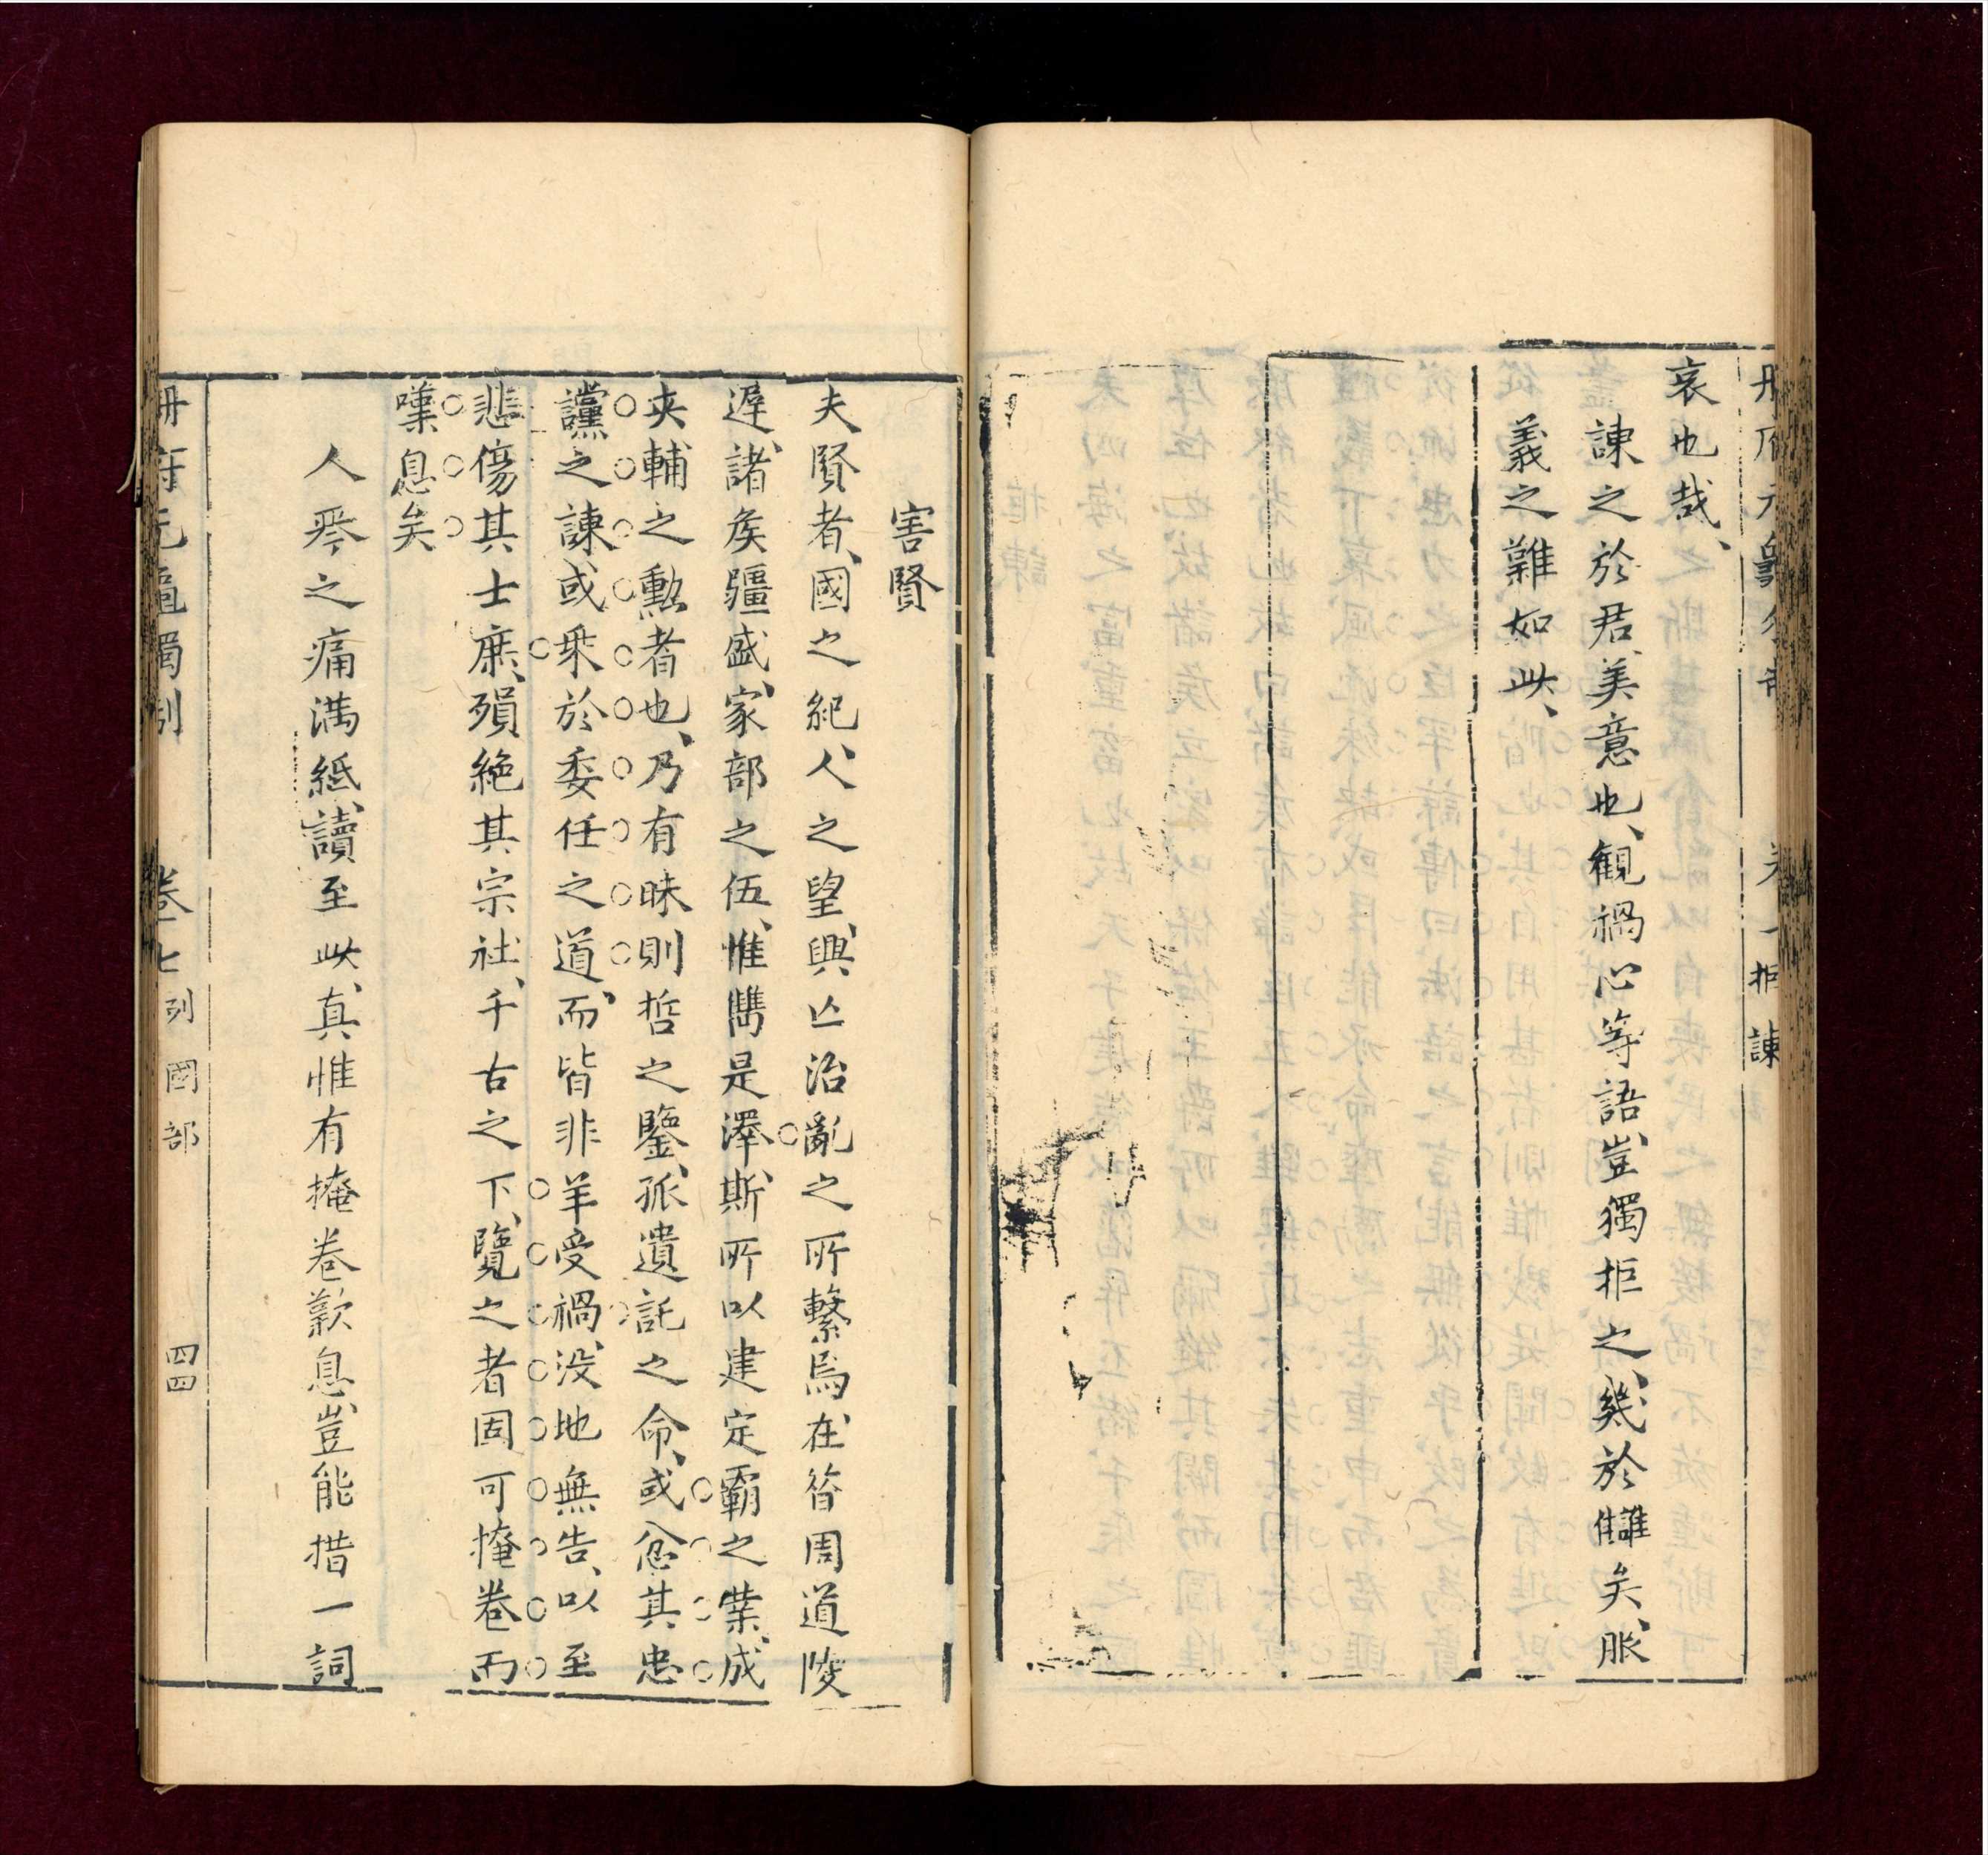 哀也哉、
諫之於君、美意也、観禍心等語、豈獨拒之、幾於讎矣、服
義之難如此、
拒諫
害賢
夫賢者、國之紀、人之望、興亾治亂之所繫焉、在昝周道陵
遅、諸矦疆盛、家部之伍、惟雋是澤、斯所以建定霸之業、成
夹輔之勲者也、乃有昧則哲之鑒、孤遺託之命、或忿其忠
讜之諫、或乗於委任之道、而皆非羊受禍、没地無告、以至
悲傷其士庶、殞絶其宗社、千古之下、覽之者固可掩卷而
嘆息矣
人殄之痛滿紙、讀至此、真惟有掩卷歎息、豈能措一詞
册府元龜獨制
卷七 列國部
四四